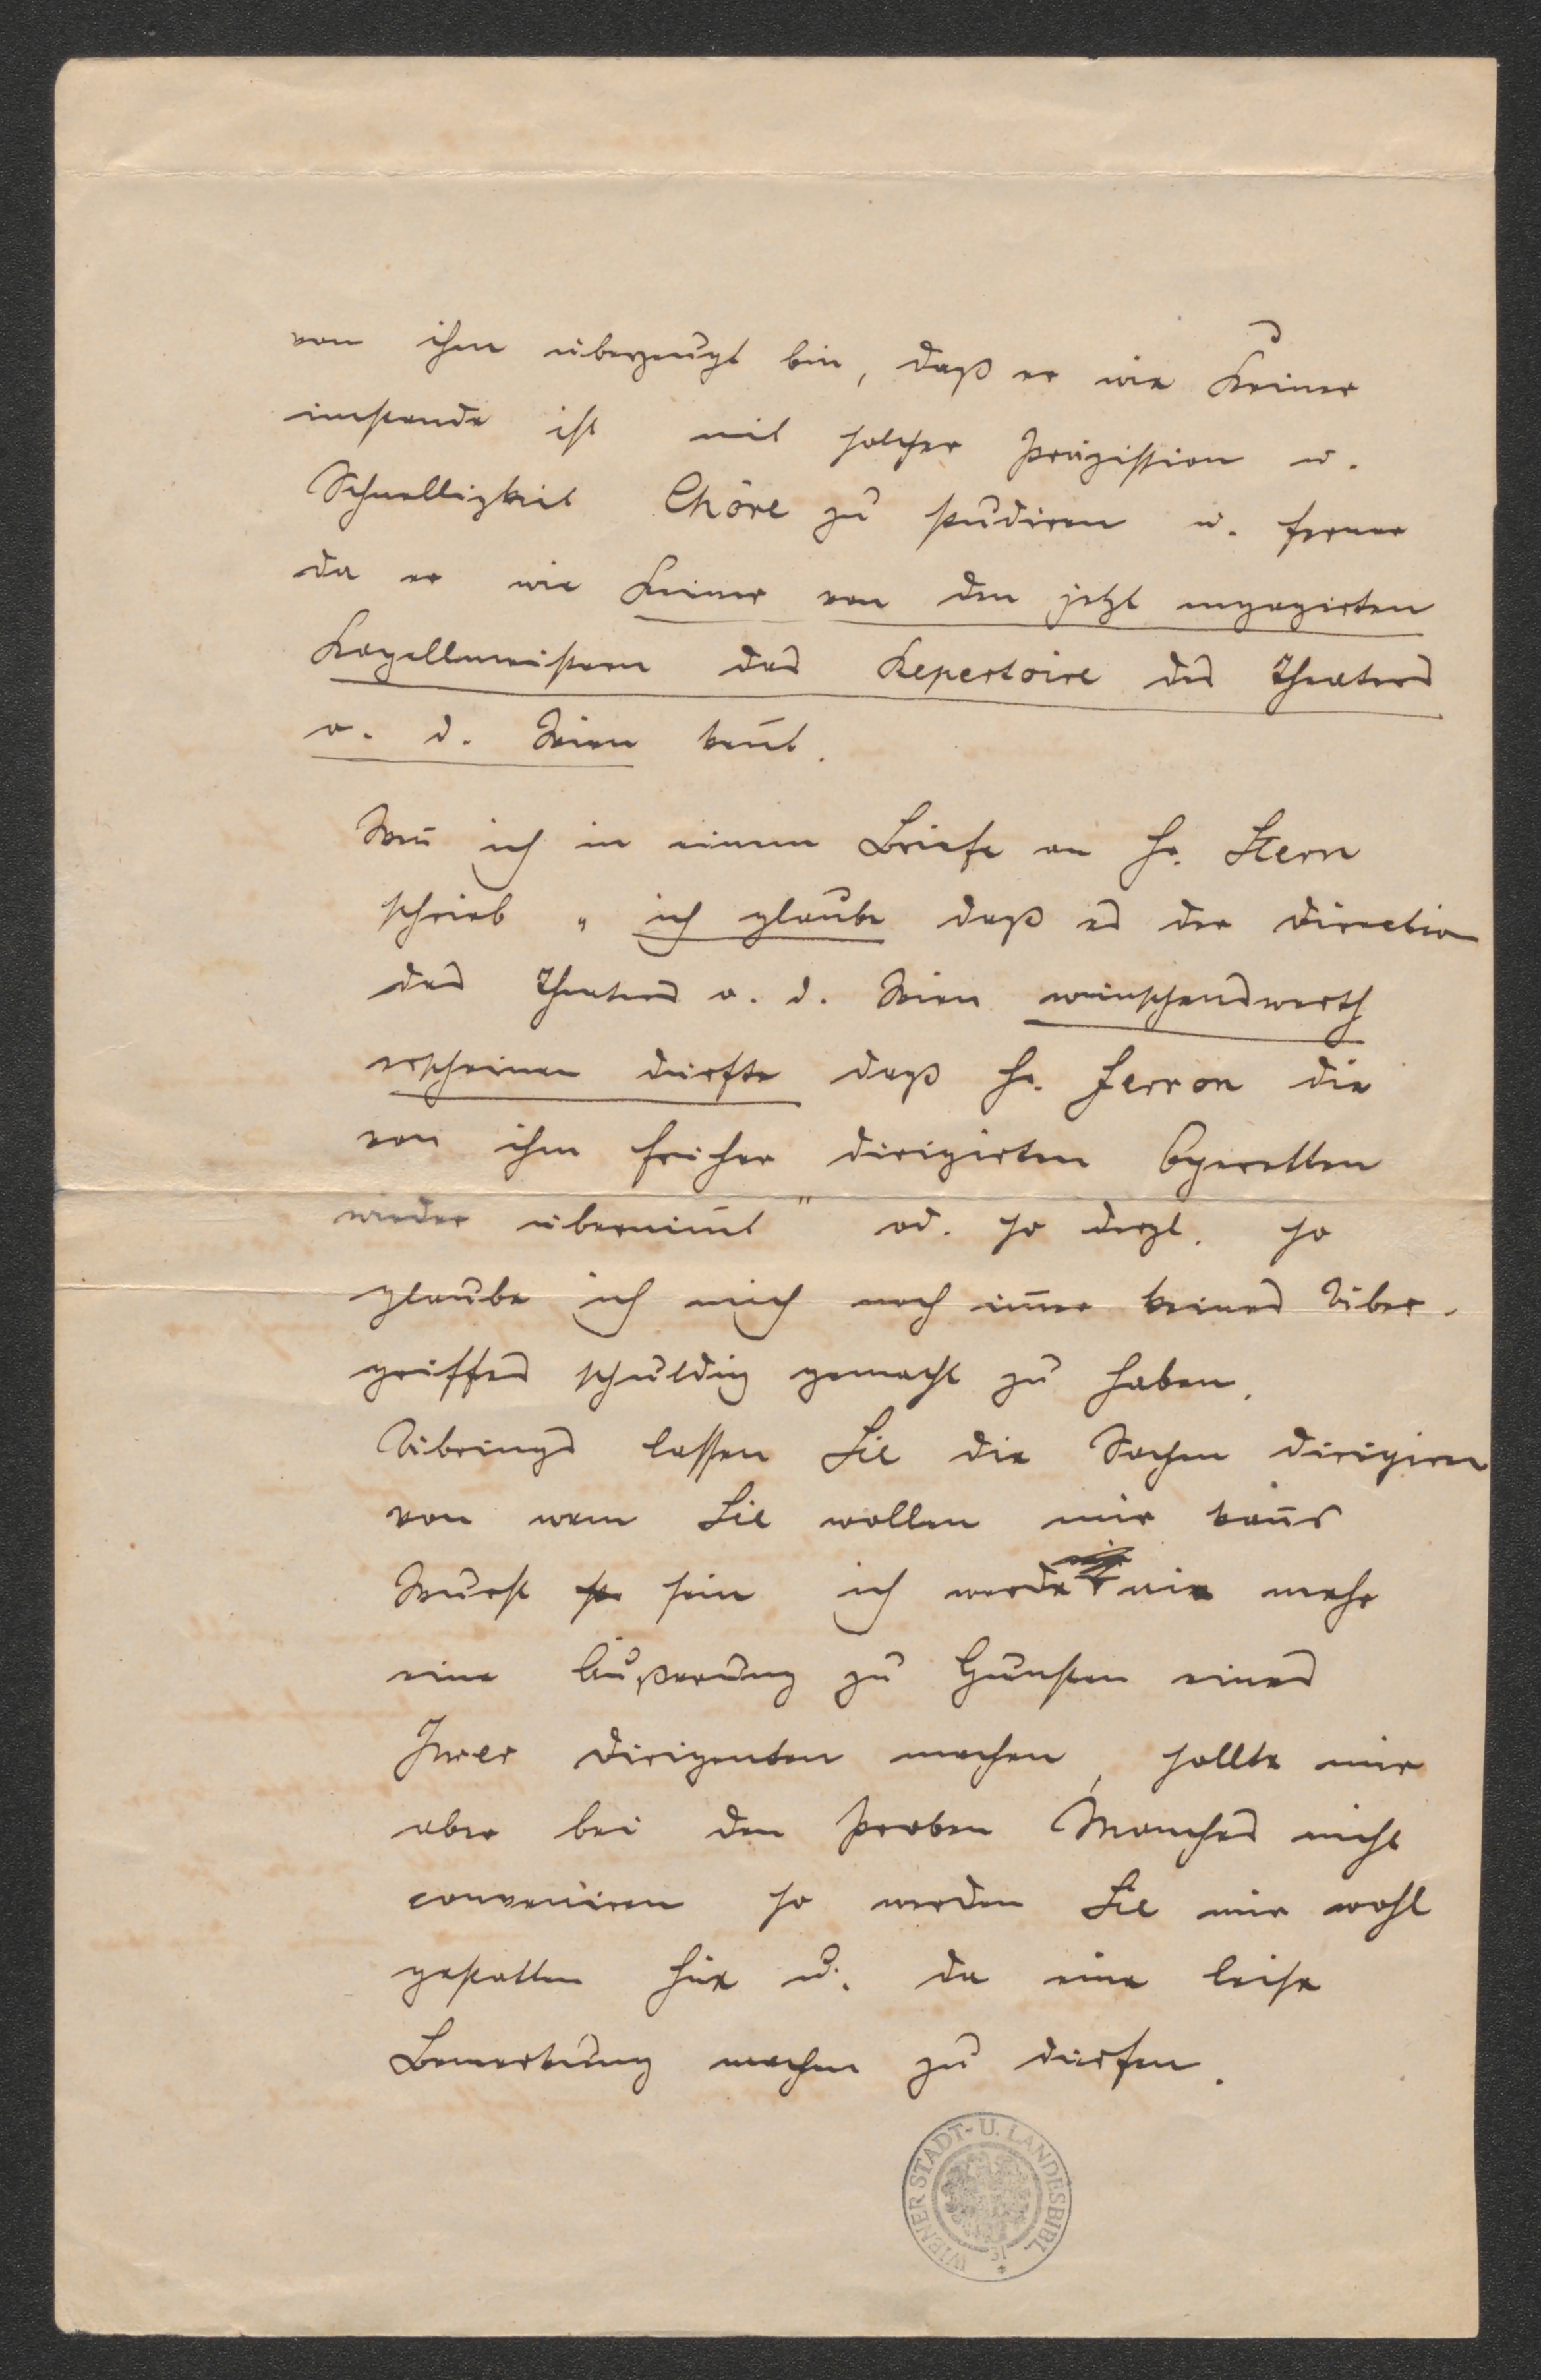 von ihm überzeugt bin, daß er wie Keiner
imstande ist mit solcher Präzission u.
Schnelligkeit Chöre zu studiren u. ferner
da er wie Keiner von den jetzt engagirten
Kapellmeistern das Repertoire des Theaters
a. d. Wien ken̄t.
Wen̄ ich in einem Briefe an H. Stern
schrieb „ich glaube daß es der Direction
des Theaters a. d. Wien wünschenswerth
erscheinen dürfte daß H. Ferron die
von ihm früher dirigirten Operetten
wieder übernim̄t" od. so dergl. so
glaube ich mich noch im̄er keines Über-
griffes schuldig gemacht zu haben.
Übrings lassen Sie die Sachen dirigiren
von wem Sie wollen mir kan̄s
Wurst sein ich werde nie mehr
eine Äußerung zu Gunsten eines
Ihrer Dirigenten machen, sollte mir
aber bei den Proben Manches nicht
conveniren so werden Sie mir wohl
gestatten hie u. da eine leise
Bemerkung machen zu dürfen.
WIENER STADT- U. LANDESBIBL.